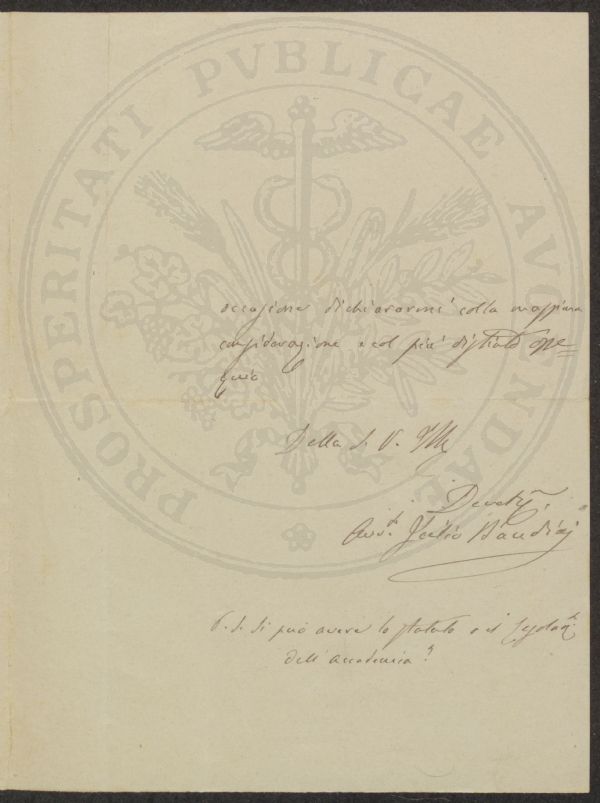 PROSPERITATI PVBLICAE AVGENDAE
occasione dichiararmi colla massima
considerazione e col più distinto osse=
quio
Della S. V. Ill
Devotṁ.
Avv.
P. S. Si può avere lo statuto o il
dell'Accademia?